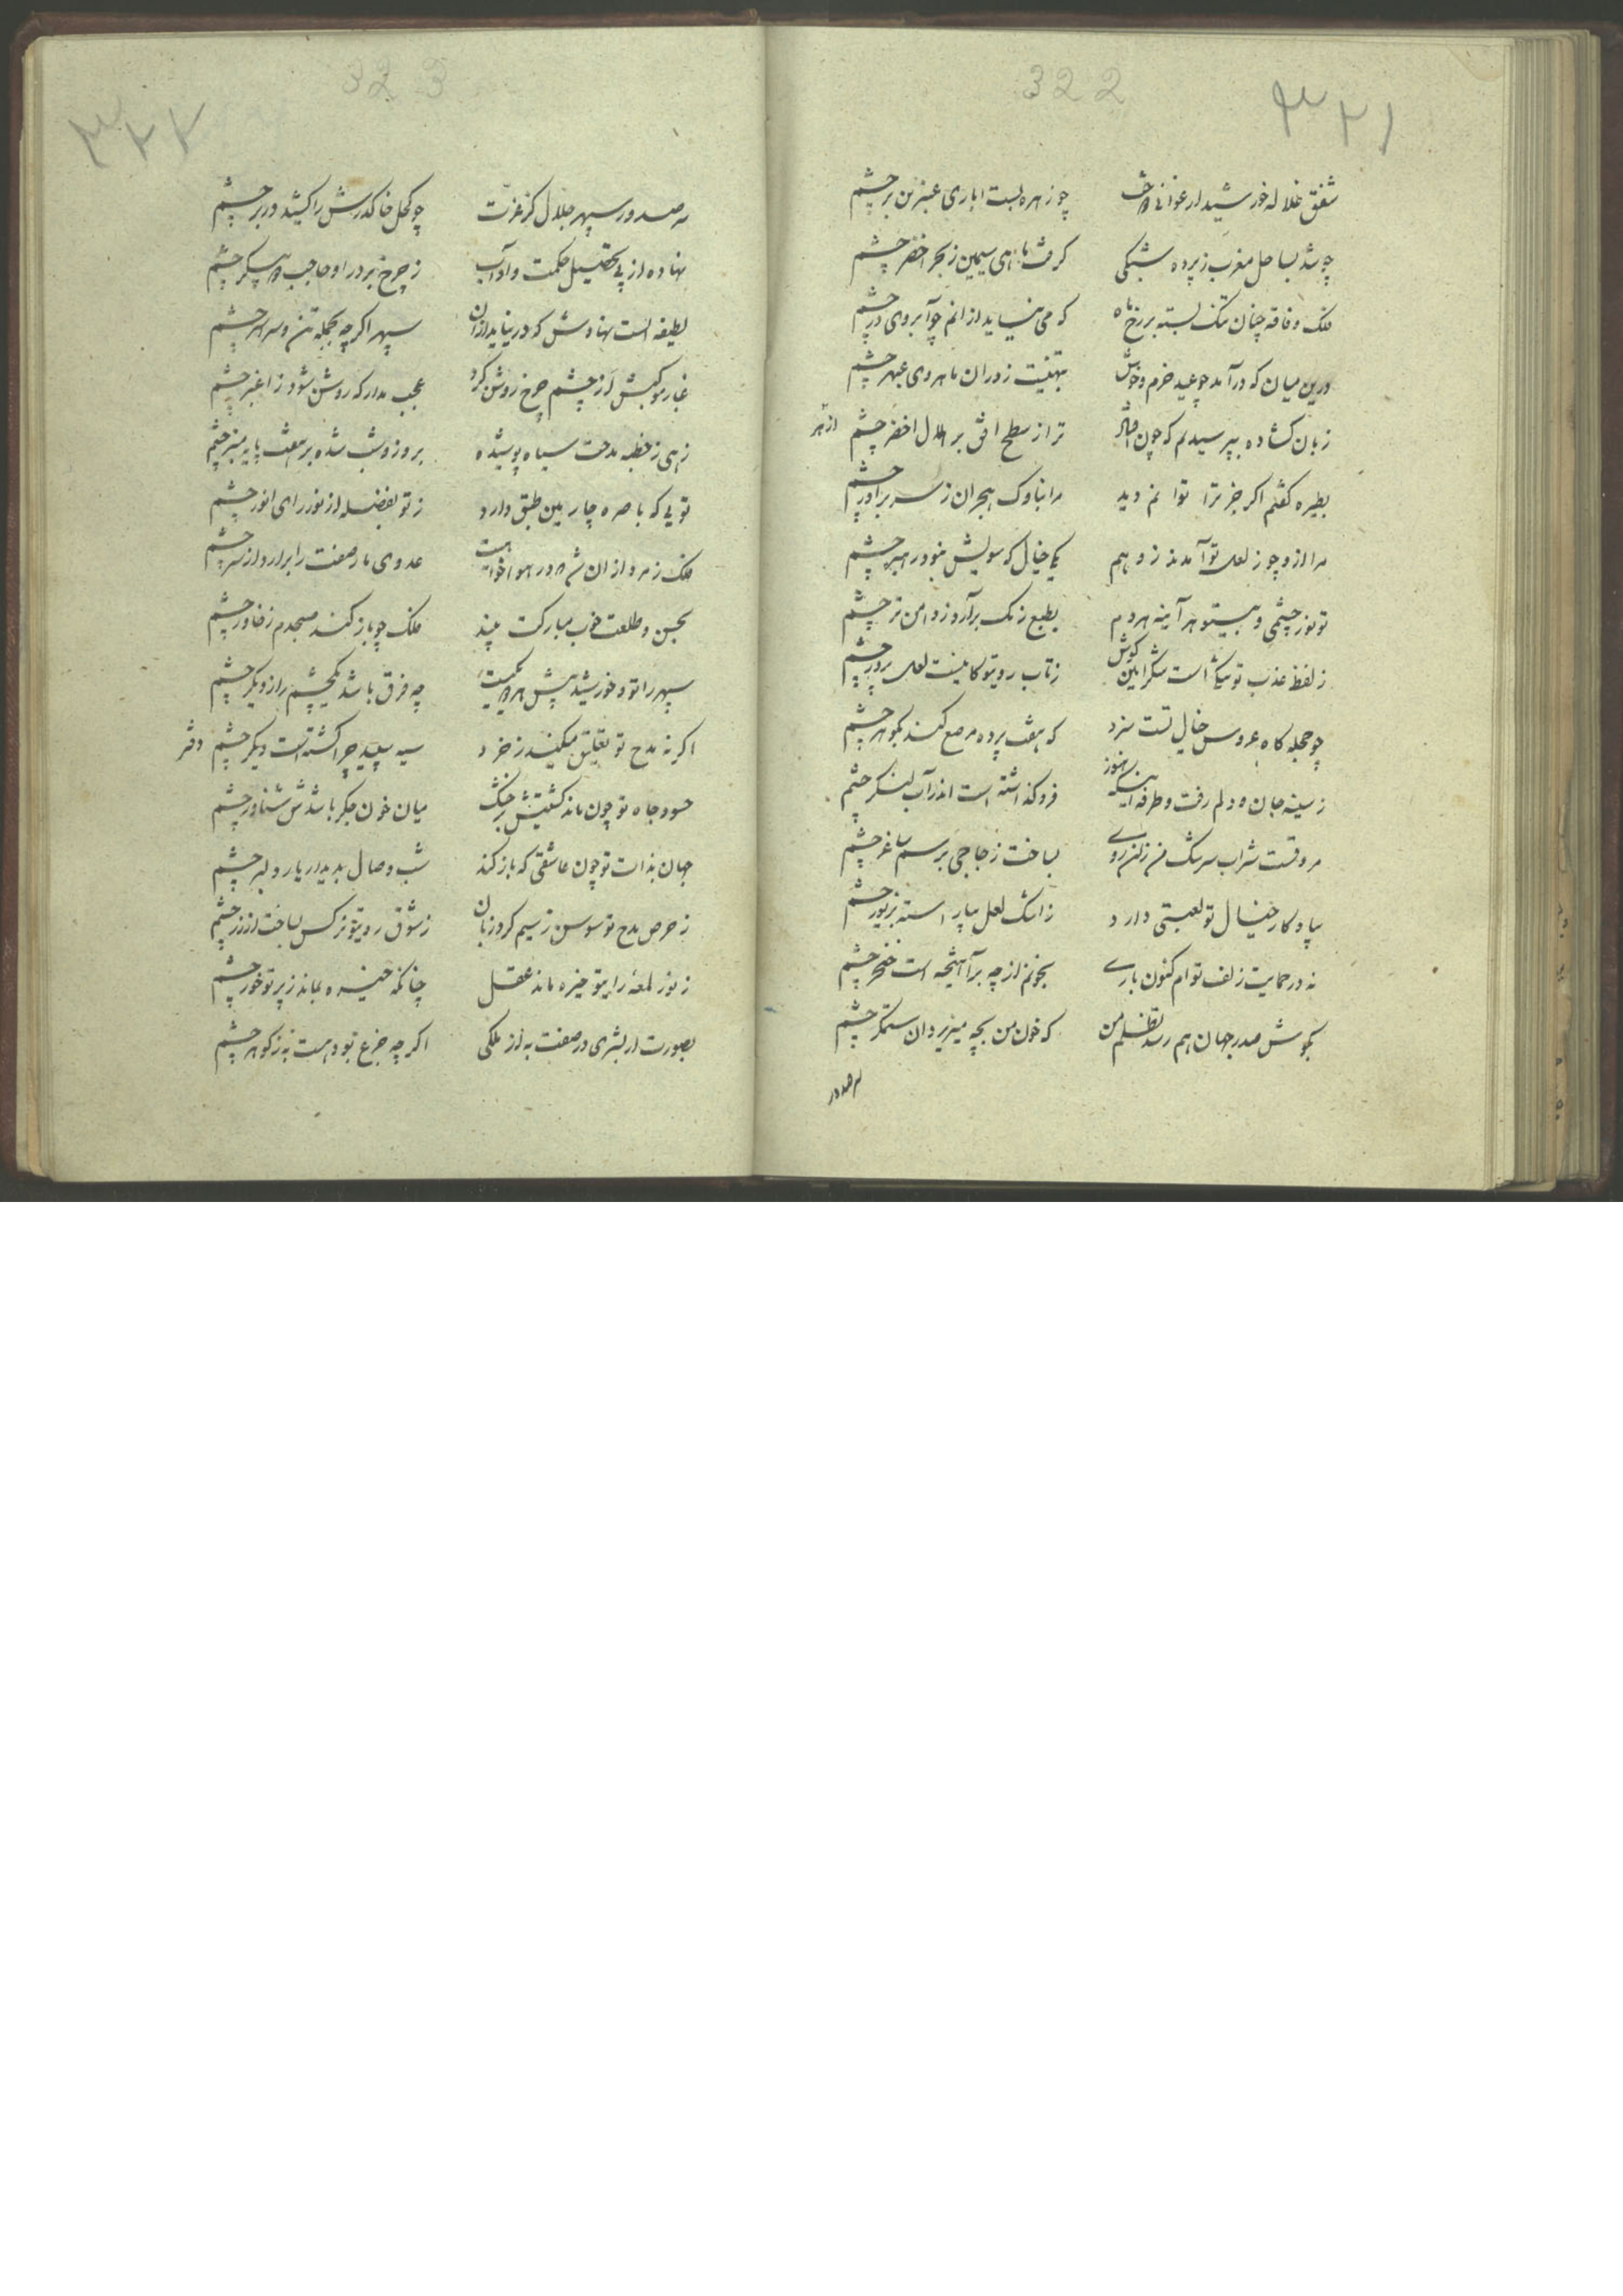 322
۳۲۱
شفق غلاله خورشید ارغوانی
چو زهره بست ا باری عنبرین بر چشم
چو شد بساحل مغرب ز پرده شبکی
کرفت ماهی سیمین ز بحر اخضر چشم
فلک وقاقه چنان تنک بسته بر رخ ماه
که می نیاید از انم جو آبروی در چشم
درین میان که درآمد چو عید خرم و خوش
بتهنیت ز دران ماهروی عبهر چشم
زبان کشاده بپرسیدلم که چون
ترا ز سطح افق بر هلال اخضر چشم
بطیره کفتم اکر جز ترا توانم دید
مرا بناوک هجران ز سر برآور چشم
مرا از و چو ز لعل تو آمدند ز وهم
یکی خیال که سویش نبود رهبر چشم
تو نور چشمی و بیتو هر آینه مردم
بطبع زنک برآرد ز دامن تر چشم
ز لفظ عذب تو تنکی است شکر این کوش
ز تاب رویتو کانیست لعل پرور چشم
چو حجله کاه عروس خیال تست سزد
که هفت پرده مرصع کند بکوهر چشم
ز سینه جان و دلم رفت و طرفه اینکه هنوز
فروکذاشته است اندر آب لنکر چشم
مروقست شراب سرشک من زان روی
بساخت زجاجی برسم ساغر چشم
بیادکار خیال تو لعبتی دارد
ز اشک لعل بپیراسته بزیور چشم
نه در حمایت زلف توام کنون باری
بخونم از چه برآهیخته است خنجر چشم
بکوش صدر جهان هم رسد تظلم من
که خون من بچه میریزد ان ستمکر چشم
323
۳۲۲
مه صدور سپهر جلال کز عزت
چو کحل خاک درش را کشید در بر چشم
نهاده از پی تحصیل حکمت و آداب
ز چرخ بر در او حاجب پیکر چشم
لطیفه است نهادش که در نیاید ازان
سپهر اکرچه بجمله تن و سراسر چشم
غبار موکبش از چشم چرخ روشن کرد
عجب مدار که روشن شود ز اغبر چشم
زهی ز خطبه مدحت سیاه پوشیده
بروز و شب شده بر هفت پایه منبر چشم
تویی که باصره چار بین طبق دارد
ز تو بفضله از نور رای انور چشم
فلک زمرد ازان شد که در هواخواهیت
عدوی مار صفت را برآرد از سر چشم
بحسن و طلعت خوب مبارکت بیند
فلک چو باز کند صبحدم ز خاور چشم
سپهر را تو و خورشید پیش هر دو یکیست
چه فرق باشد یکچشم را ز دیکر چشم
اکر نه مدح تو تعلیق میکنند ز خرد
سیه سپید چرا کشته است دیکر چشم
حسود جاه تو چون ماند کشتیش بر خشک
میان خون جکر باشدش شناور چشم
جهان بذات تو چون عاشقی که باز کند
شب وصال بدیدار یار دلبر چشم
ز حرص مدح تو سوسن ز سیم کرد زبان
ز شوق رویتو نرکس بساخت از زر چشم
ز نور لمعه رایتو خیره ماند عقل
چنانکه خیره بماند ز پرتو خور چشم
بصورت ار بشری در صفت به از ملکی
اکرچه جزع بود هست به ز کوهر چشم